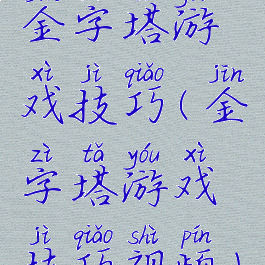 金字塔游
xì jì qiǎo jīn
戏技巧(金
zì tǎ yóu xì
字塔游戏
jì qiǎo shì pín
技巧视频)